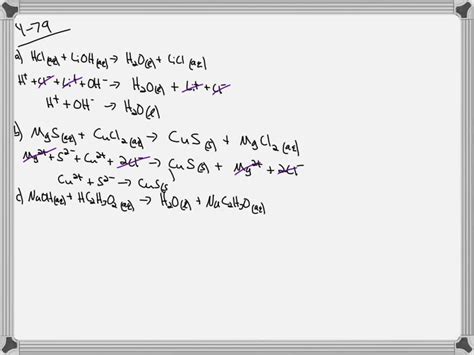 4-79
a) HCl(aq) + LiOH(aq) → H₂O(l) + LiCl(aq)
H⁺ + Cl⁻ + Li⁺ + OH⁻ → H₂O(l) + Li⁺ + Cl⁻
H⁺ + OH⁻ → H₂O(l)
b) MgS(aq) + CuCl₂(aq) → CuS(s) + MgCl₂(aq)
Mg²⁺ + S²⁻ + Cu²⁺ + 2Cl⁻ → CuS(s) + Mg²⁺ + 2Cl⁻
Cu²⁺ + S²⁻ → CuS(s)
c) NaOH(aq) + HC₂H₃O₂(aq) → H₂O(l) + NaC₂H₃O(aq)